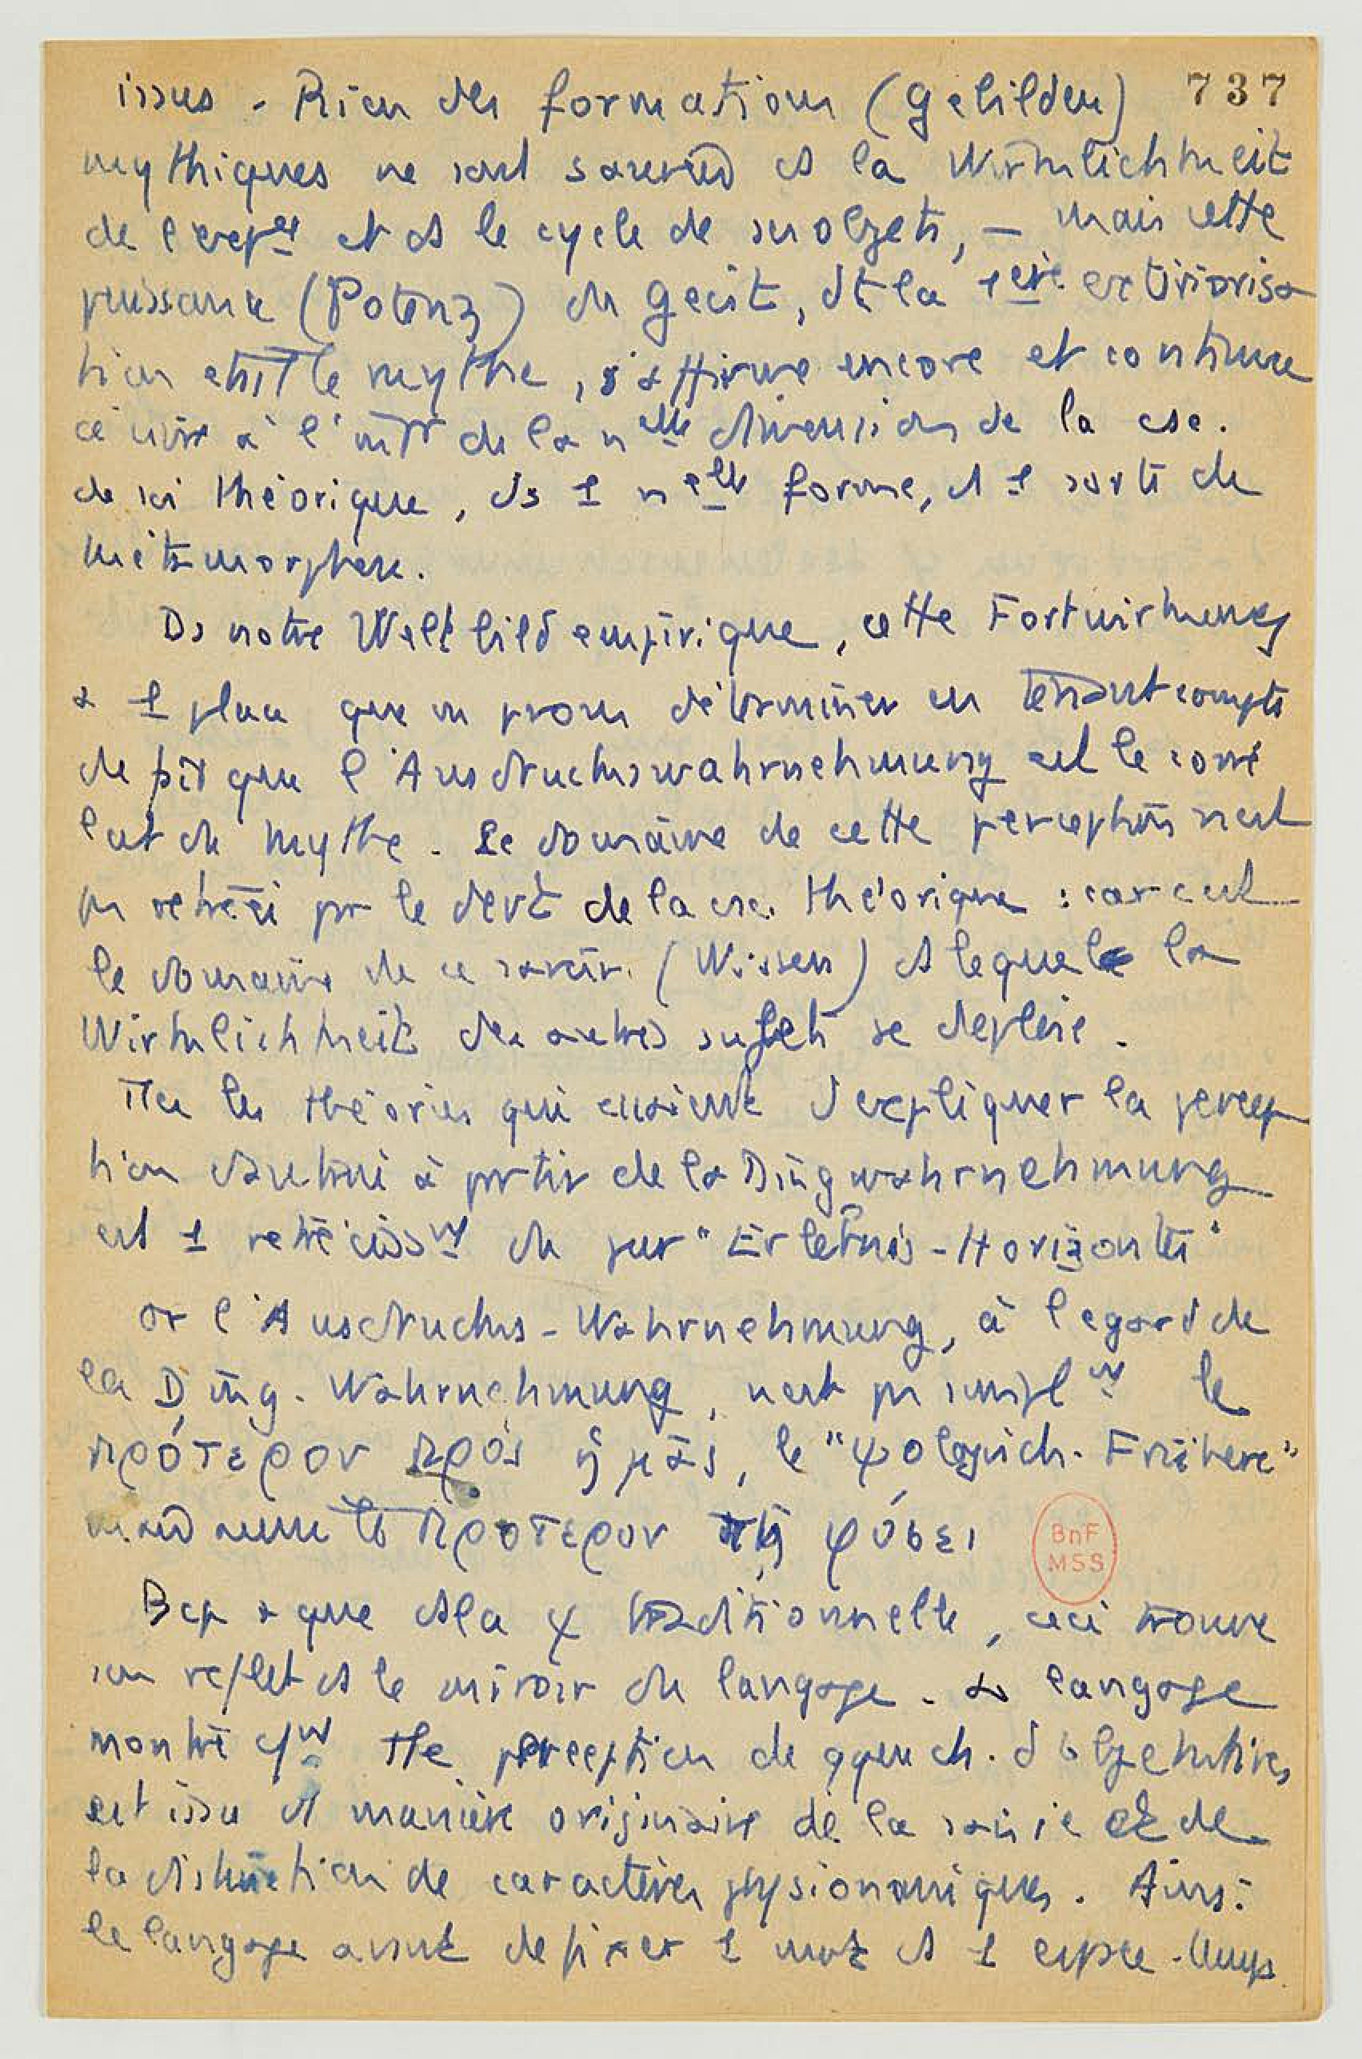 issus - Rien des formations (Gebilden) 737
mythiques ne sont ds la Wirklichkeit
de l'exp et ds le cycle de ses objets, — mais cette
puissance (Potenz) du Geist, dt la 1ère extériorisa
tion était le mythe, s'affirme encore et continue
à l'int de la nelle dimension de la csce.
de soi théorique, ds 1 nelle forme, ds 1 sorte de
métamorphose.
Ds notre Weltbild empirique, cette Fortwirkung
a 1 place que ns pvons déterminer en tenant compte
du fait que l'Ausdruckswahrnehmung est le corré
lat du mythe. Le domaine de cette perception n'est
pas rétréci pr le devt de la csce. théorique : car c'est
le domaine de ce savoir. (Wissen) ds lequel la
Wirklichkeit des autres sujets se déploie.
Ttes les théories qui essaient d'expliquer la percep
tion d'autrui à partir de la Dingwahrnehmung
est 1 rétrécisst du pur "Erlebnis-Horizontes"
Or l'Ausdrucks-Wahrnehmung, à l'égard de
la Ding-Wahrnehmung, n'est pas simplt le
πρότερον πρὸς ἡμᾶς, le "ψologisch-Frühere"
le πρότερον τῇ φύσει
Bcp + que ds la ψ traditionnelle, ceci trouve
son reflet ds le miroir du langage. Le langage
montre cmt tte perception de qque ch. d'objectives
est issu d manière originaire de la saisie et de
la distinction de caractères physionomiques. Ainsi
le langage avant de fixer 1 mot ds 1 espce-temps